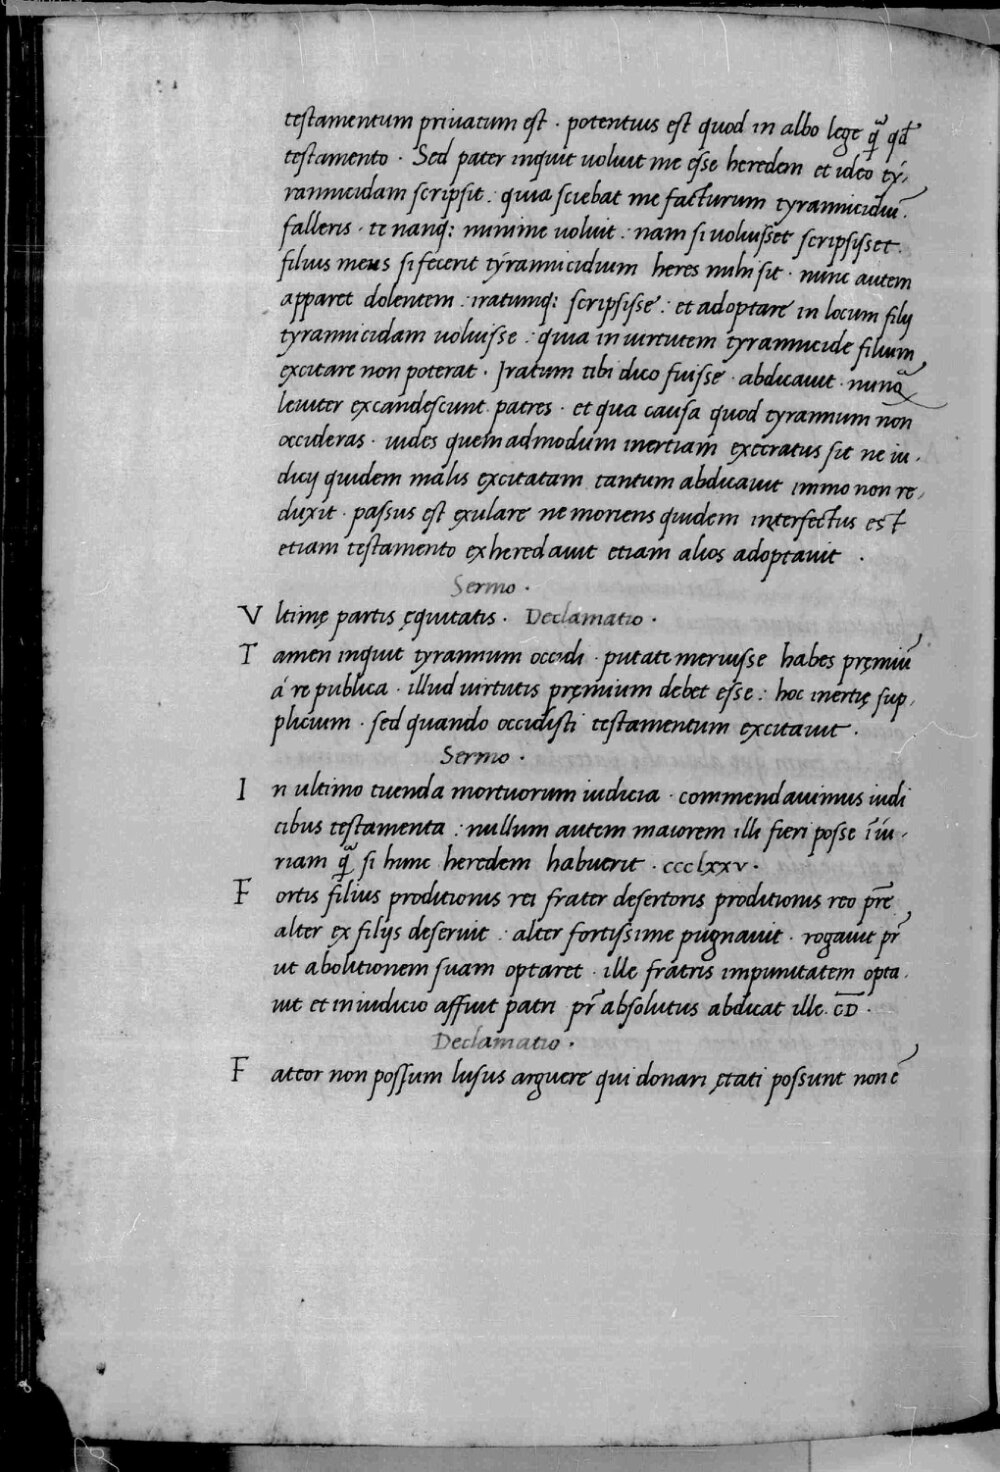 testamentum priuatum est · potentius est quod in albo lege q̃ qđ
testamento · Sed pater inquit uoluit me esse heredem et ideo ty-
rannicidam scripsit : quia sciebat me facturum tyrannicidiũ .
falleris · te nanq: minime uoluit : nam si uoluisset scripsisset .
filius meus si fecerit tyrannicidium heres mihi sit · nunc autem
apparet dolentem : iratumq: scripsisse : et adoptare in locum filij
tyrannicidam uoluisse : quia in uirtutem tyrannicide filium
excitare non poterat · Iratum tibi dico fuisse · abdicauit · nunq̃
leuiter excandescunt patres · et qua causa quod tyrannum non
occideras · uides quemadmodum inertiam execratus sit ne iu-
dicij quidem malis excitatam tantum abdicauit immo non re-
duxit · passus est exulare ne moriens quidem interfectus est
etiam testamento exheredauit etiam alios adoptauit .
Sermo ·
V ltimę partis ęquitatis · Declamatio ·
T amen inquit tyrannum occidi · putate meruisse habes pręmiũ
á re publica · illud uirtutis pręmium debet esse : hoc inertię sup-
plicium · sed quando occidisti testamentum excitauit ·
Sermo ·
I n ultimo tuenda mortuorum iudicia · commendauimus iudi
cibus testamenta : nullum autem maiorem illi fieri posse iĩu-
riam q̃ si hunc heredem habuerit · ccclxxv ·
F ortis filius proditionis rei frater desertoris proditionis reo pr̃e
alter ex filijs deseruit : alter fortissime pugnauit · rogauit pr̃
ut abolitionem suam optaret · ille fratris impunitatem opta-
uit et in iudicio affuit patri pr̃ absolutus abdicat ille . C̅D̅ ·
Declamatio ·
F ateor non possum lusus arguere qui donari ętati possunt non ẽ